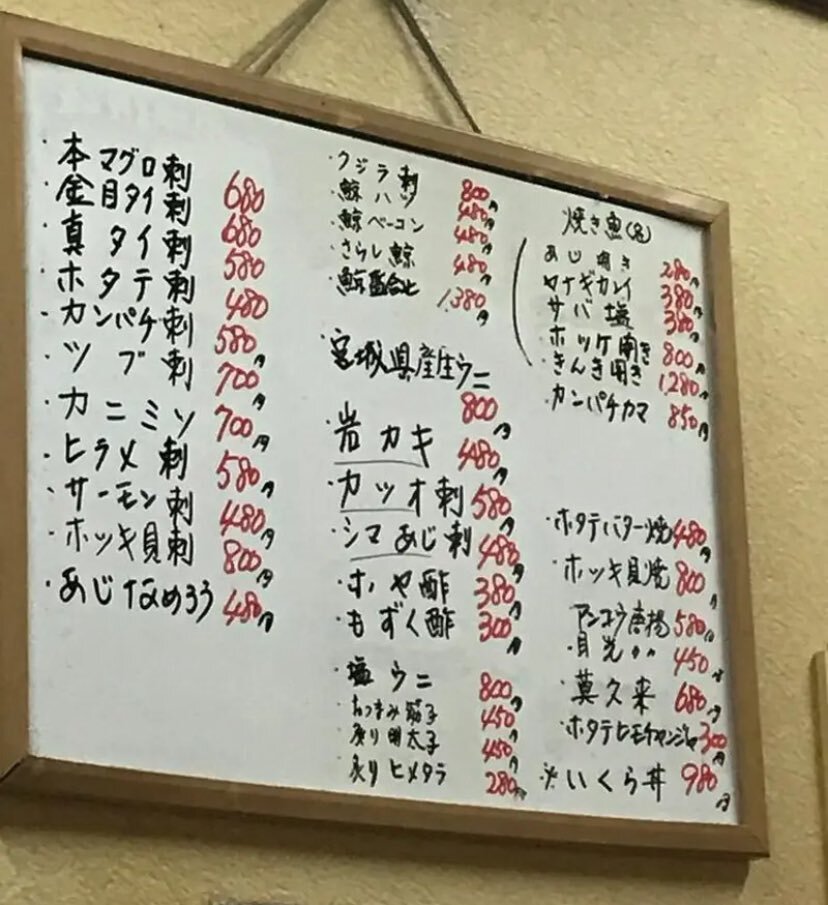 ・本マグロ刺 680
・金目タイ刺 680
・真タイ刺 580
・ホタテ刺 480
・カンパチ刺 580円
・ツブ刺 700円
・カニミソ 700円
・ヒラメ刺 580円
・サーモン刺 480円
・ホッキ貝刺 800円
・あじなめろう 480円
・クジラ刺 800円
・鯨ハツ 480円
・鯨ベーコン 480円
・さらし鯨 480円
・鯨盛合せ 1,380円
・宮城県産生ウニ 800円
・岩カキ 480円
・カツオ刺 580円
・シマあじ刺 480円
・ホヤ酢 380円
・もずく酢 300円
・塩ウニ 800円
・おつまみ筋子 450円
・炙り明太子 450円
・炙りヒメタラ 280円
焼き魚
あじ開き 280円
ヤナギカレイ 380円
サバ塩 380円
ホッケ開き 800円
きんき開き 1,280円
・カンパチカマ 850円
・ホタテバター焼 480円
・ホッキ貝焼 800円
アンコウ唐揚 580円
・目光〃 450円
・莫久来 680円
・ホタテヒモチャンジャ 300円
※いくら丼 980円